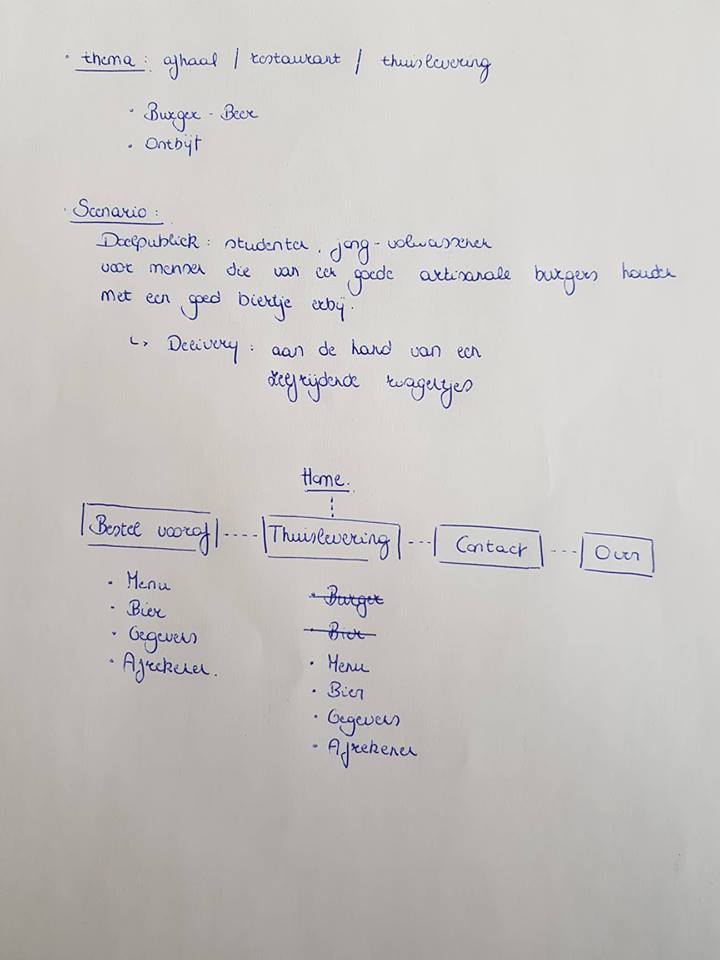 · thema : afhaal / restaurant / thuislevering
· Burger - Beer
· Ontbijt
· Scenario :
Doelpubliek : studenten , jong - volwassenen
voor mensen die van een goede artisanale burgers houden
met een goed biertje erbij.
↳ Delivery : aan de hand van een
zelfrijdende wageltjes
Home.
Bestel vooraf ---- Thuislevering ---- Contact --- Over
· Menu
· Bier
· Gegevens
· Afrekenen.
· Burger
· Bier
· Menu
· Bier
· Gegevens
· Afrekenen